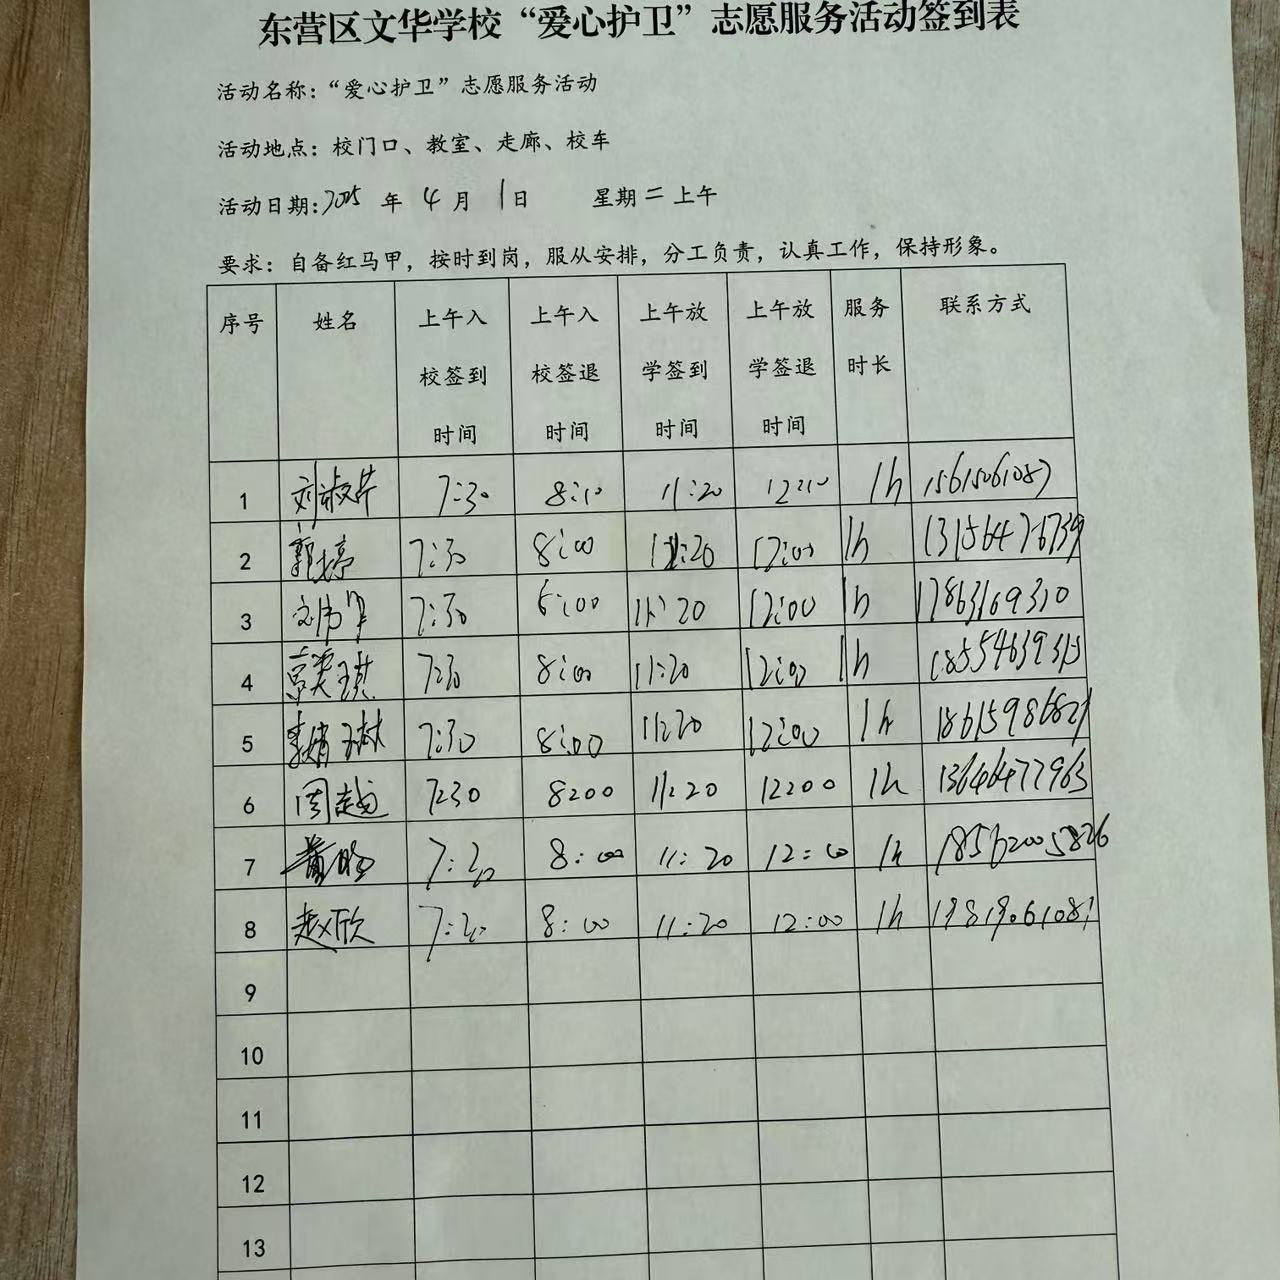 东营区文华学校“爱心护卫”志愿服务活动签到表
活动名称：“爱心护卫”志愿服务活动
活动地点：校门口、教室、走廊、校车
活动日期:2025 年 4 月 1日 星期二上午
要求：自备红马甲，按时到岗，服从安排，分工负责，认真工作，保持形象。
序号 姓名 上午入校签到时间 上午入校签退时间 上午放学签到时间 上午放学签退时间 服务时长 联系方式
1 刘淑芹 7:30 8:10 11:20 12:10 1h 15615061087
2 郭婷 7:30 8:00 11:20 12:00 1h 13156476739
3 7:30 8:00 11:20 12:00 1h 17863169310
4 7:30 8:00 11:20 12:00 1h
5 7:30 8:00 11:20 12:00 1h 18615986821
6 周越 7:30 8:00 11:20 12:00 1h 13646477963
7 8:00 11:20 12:00 1h 18562005826
8 赵欣 8:00 11:20 12:00 1h
9
10
11
12
13